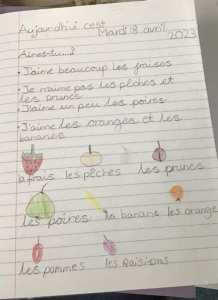 Aujourd'hui c'est
Mardi 18 avril
2023
Aimes-tu...?
• J'aime beaucoup les fraises
• Je n'aime pas les pêches et
les prunes
• J'aime un peu les poires
• J'aime les oranges et les
bananes
la frais les pêches les prunes
les poires la banane les orange
les pommes les raisions